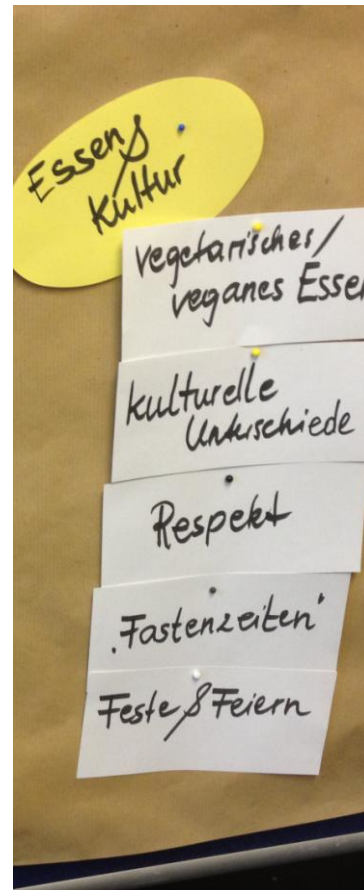 Essen &
Kultur
vegetarisches/
veganes Essen
kulturelle
Unterschiede
Respekt
„Fastenzeiten“
Feste & Feiern